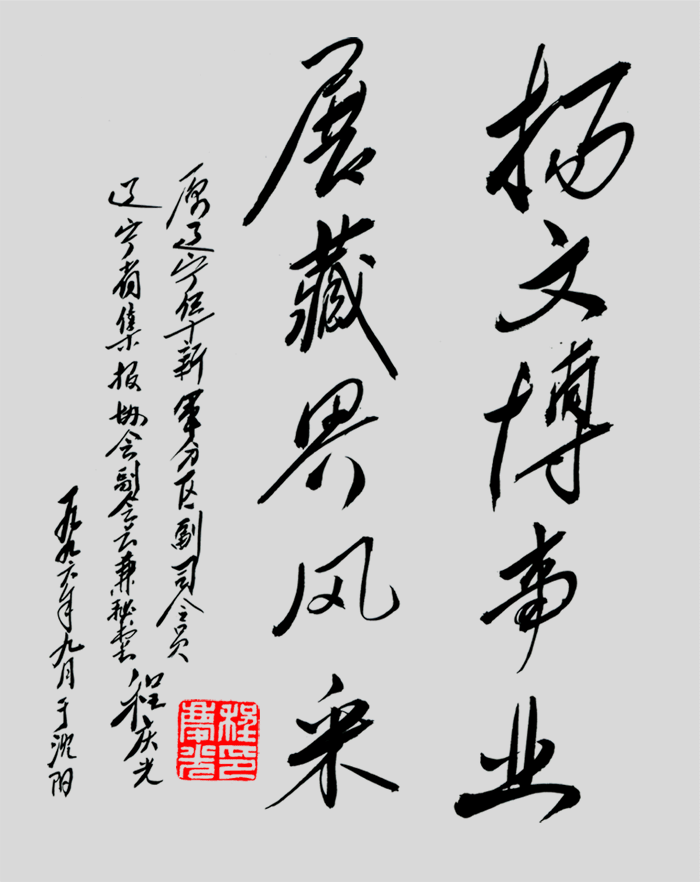 扬文博事业
展藏界风采
原辽宁阜新军分区副司令员
辽宁省集报协会副会长兼秘书长 程庆光
一九九六年九月于沈阳
程印庆光